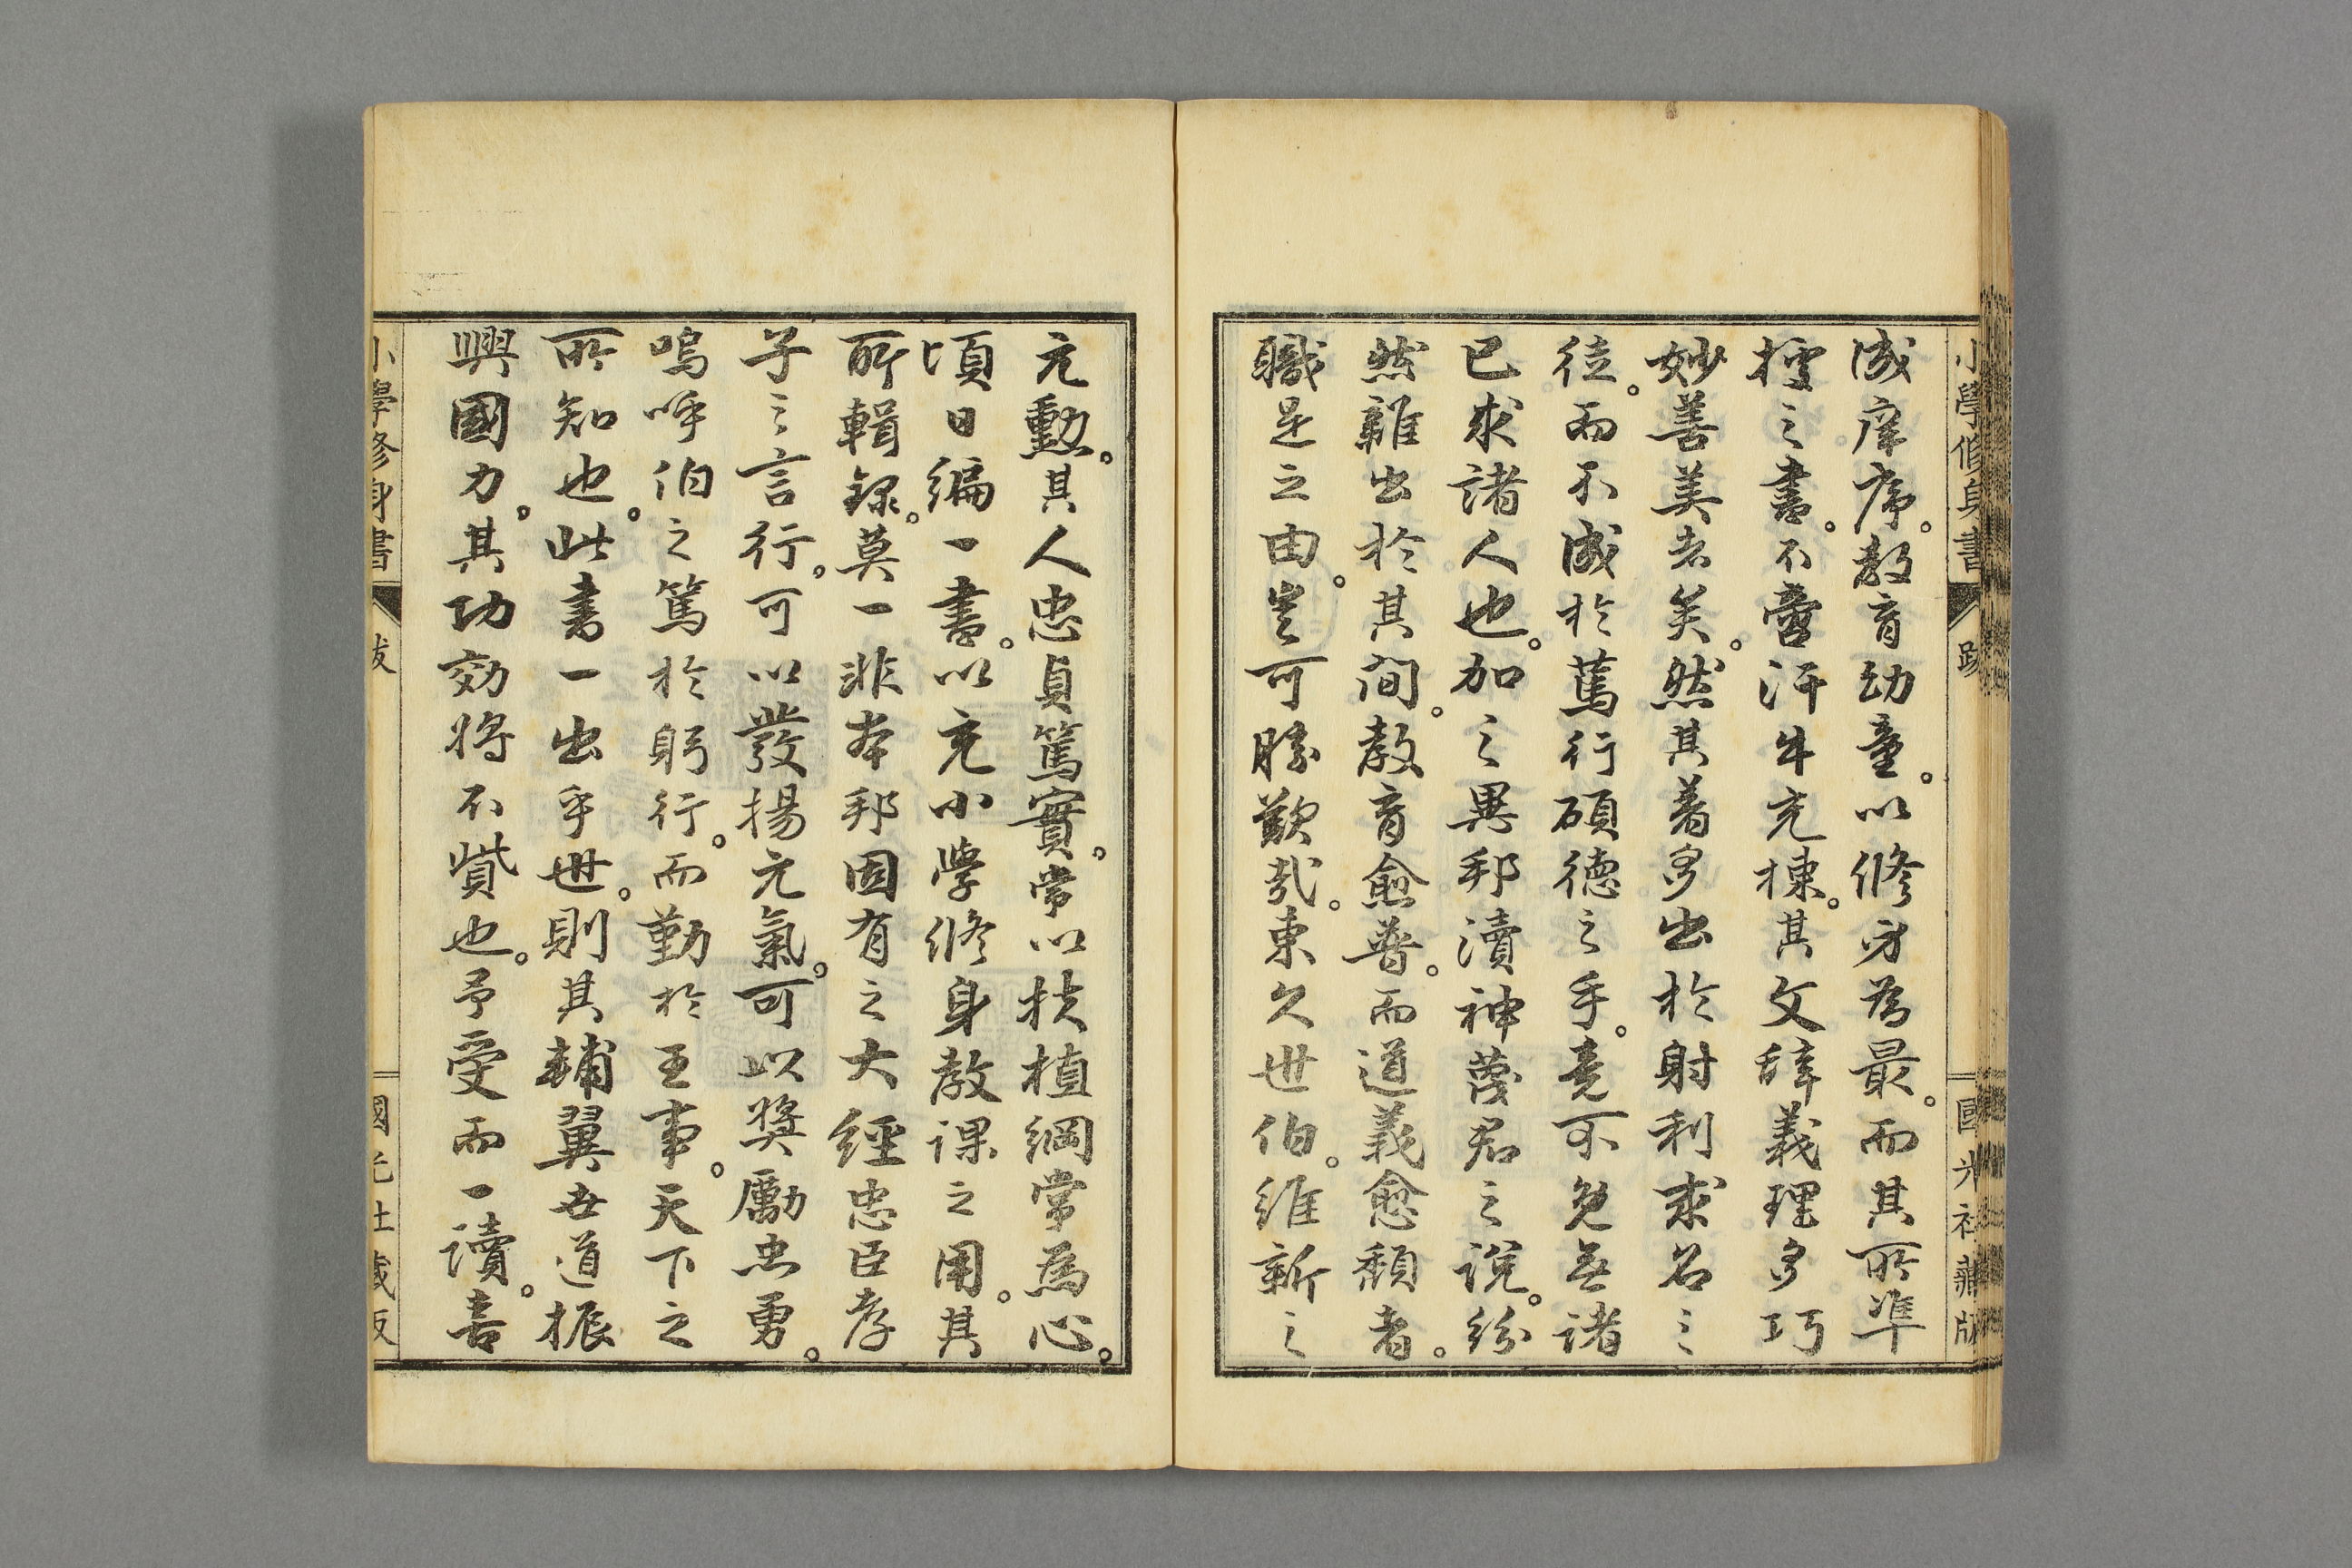 小學修身書 跋 國光社藏版
成庠序。教育幼童。以修身爲最。而其所準
據之書。不啻汗牛充棟。其文辞義理多巧
妙善美者矣。然其著多出於射利求名之
徒。而不成於篤行碩德之手。竟不免無諸
已求諸人也。加之異邦瀆神蔑君之說。紛
然雜出於其間。教育愈普。而道義愈頽者。
職是之由。豈可勝歎哉。東久世伯。維新之
元勳。其人忠貞篤實。常以扶植綱常為心。
頃日編一書。以充小學修身教課之用。其
所輯錄。莫一非本邦固有之大經忠臣孝
子之言行。可以發揚元氣。可以奬勵忠勇。
嗚呼伯之篤於躬行。而勤於王事。天下之
所知也。此書一出乎世。則其輔翼世道振
興國力。其功効將不貲也。予受而一讀。喜
小學修身書 跋 國光社藏版